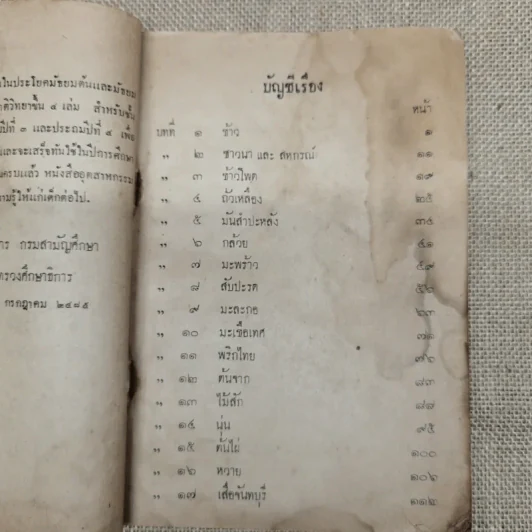 ในประโยคมัธยมต้นและมัธยม
ศิวิทยาชั้น ๔ เล่ม สำหรับชั้น
ปีที่ ๓ และประถมปีที่ ๔ เพื่อ
และจะเสร็จทันใช้ในปีการศึกษา
ครบแล้ว หนังสืออุตสาหกรรม
รู้ให้แก่เด็กต่อไป.
การ กรมสามัญศึกษา
ทรวงศึกษาธิการ
กรกฎาคม ๒๔๘๕
บัญชีเรื่อง
หน้า
บทที่ ๑ ข้าว ๑
" ๒ ชาวนา และ สหกรณ์ ๑๑
" ๓ ข้าวโพด ๑๙
" ๔ ถั่วเหลือง ๒๕
" ๕ มันสำปะหลัง ๓๔
" ๖ กล้วย ๔๑
" ๗ มะพร้าว ๔๙
" ๘ สับปะรด ๕๖
" ๙ มะละกอ ๖๓
" ๑๐ มะเขือเทศ ๗๑
" ๑๑ พริกไทย ๗๖
" ๑๒ ต้นจาก ๘๓
" ๑๓ ไม้สัก ๘๗
" ๑๔ นุ่น ๙๕
" ๑๕ ต้นไผ่ ๑๐๐
" ๑๖ หวาย ๑๐๖
" ๑๗ เสื่อจันทบุรี ๑๑๒